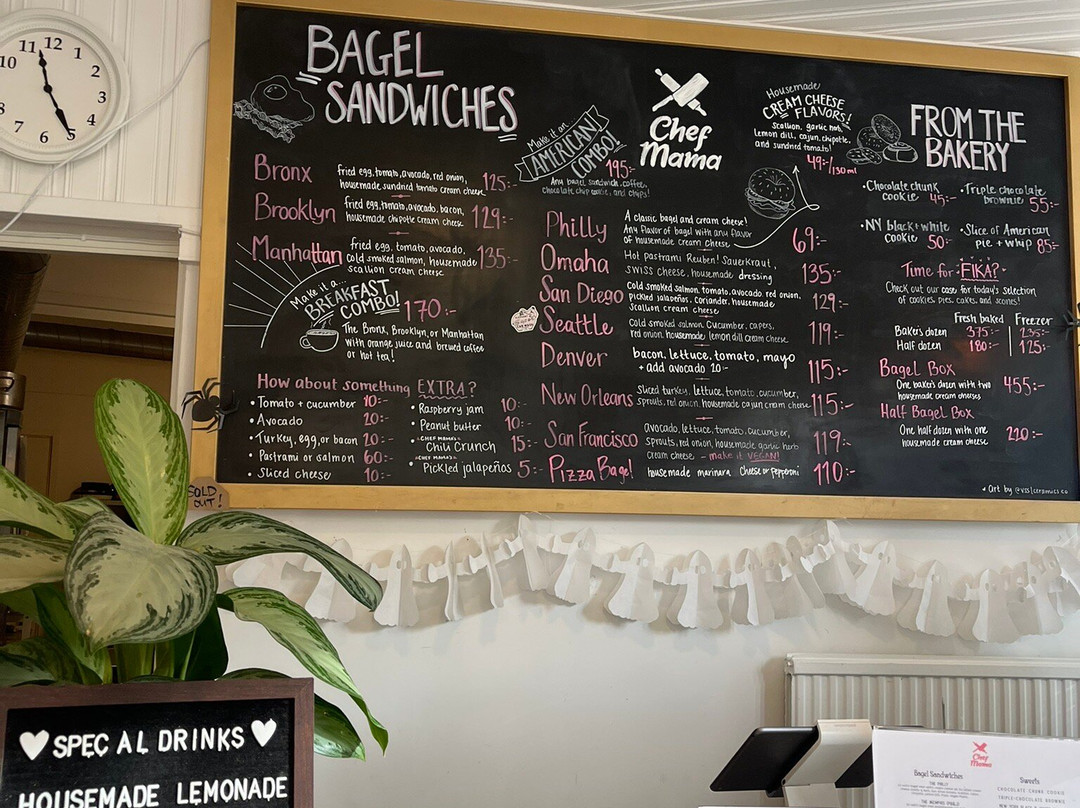 11 12 1
10 2
3
9 4
7 6 5
BAGEL
SANDWICHES
Bronx
fried egg, tomato, avocado, red onion,
housemade sundried tomato cream cheese
125:-
Brooklyn
fried egg, tomato, avocado, bacon,
housemade chipotle cream cheese
129:-
Manhattan
fried egg, tomato, avocado,
cold smoked salmon, housemade
scallion cream cheese
135:-
Make it a...
BREAKFAST
COMBO!
170:-
The Bronx, Brooklyn, or Manhattan
with orange juice and brewed coffee
or hot tea!
How about something EXTRA?
• Tomato + cucumber 10:-
• Avocado 20:-
• Turkey, egg, or bacon 20:-
• Pastrami or salmon 60:-
• Sliced cheese 10:-
• Raspberry jam 10:-
• Peanut butter 10:-
• CHEF MAMA'S
Chili Crunch 15:-
• CHEF MAMA'S
Pickled jalapeños 5:-
Make it an
AMERICAN
COMBO!
195:-
Any bagel sandwich, coffee,
chocolate chip cookie, and chips!
Chef
Mama
Housemade
CREAM CHEESE
FLAVORS!
scallion, garlic herb,
lemon dill, cajun, chipotle,
and sundried tomato!
49:-/130 ml
Philly
A classic bagel and cream cheese!
Any flavor of bagel with any flavor
of housemade cream cheese
69:-
Omaha
Hot pastrami Reuben! Sauerkraut,
swiss cheese, housemade dressing
135:-
San Diego
Cold smoked salmon, tomato, avocado, red onion,
pickled jalapeños, coriander, housemade
scallion cream cheese
129:-
Seattle
Cold smoked salmon, cucumber, capers,
red onion, housemade lemon dill cream cheese
119:-
Denver
bacon, lettuce, tomato, mayo
+ add avocado 20-
115:-
New Orleans
Sliced turkey, lettuce, tomato, cucumber,
sprouts, red onion, housemade cajun cream cheese
115:-
San Francisco
avocado, lettuce, tomato, cucumber,
sprouts, red onion, housemade garlic herb
cream cheese - make it VEGAN!
119:-
Pizza Bagel
housemade marinara, Cheese or Pepperoni
110:-
FROM THE
BAKERY
• Chocolate chunk
cookie 45:-
• Triple chocolate
brownie 55:-
• NY black + white
cookie 50:-
• Slice of American
pie + whip 85:-
Time for FIKA?
Check out our case for today's selection
of cookies, pies, cakes, and scones!
Fresh baked Freezer
Baker's dozen 375:- 235:-
Half dozen 180:- 125:-
Bagel Box
One baker's dozen with two
housemade cream cheeses
455:-
Half Bagel Box
One half dozen with one
housemade cream cheese
220:-
* Art by @vsslceramics.co
SOLD
OUT!
SPEC AL DRINKS
HOUSEMADE LEMONADE
Chef
Mama
Bagel Sandwiches
THE PHILLY
THE MEMPHIS PHILLY
Sweets
CHOCOLATE CHUNK COOKIE
TRIPLE-CHOCOLATE BROWNIE